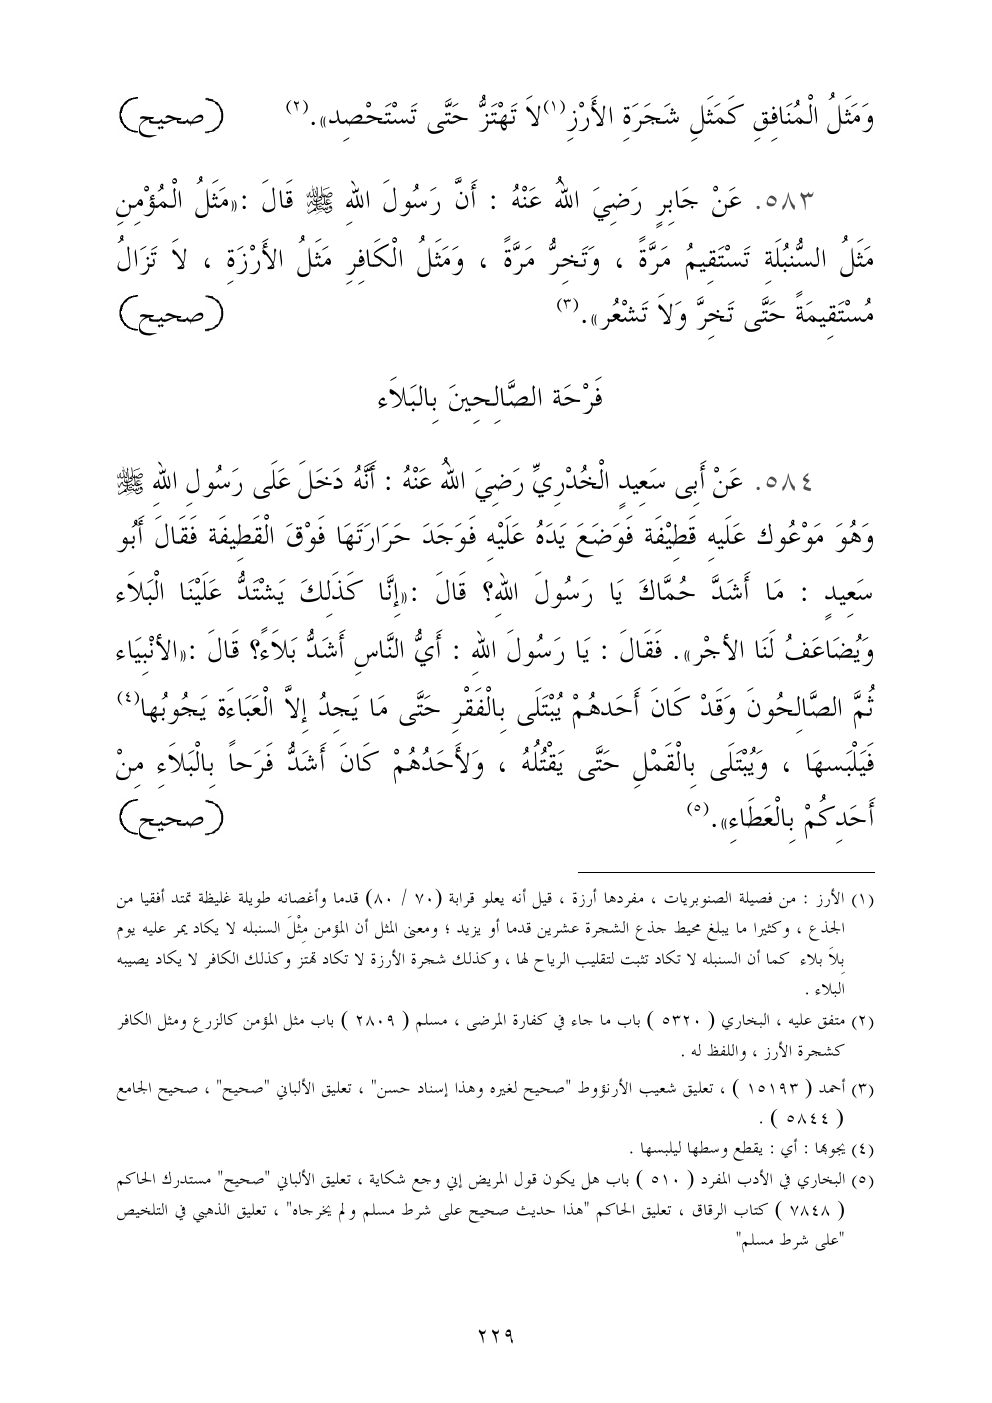 وَمَثَلُ الْمُنَافِقِ كَمَثَلِ شَجَرَةِ الأَرْزِ(١)لاَ تَهْتَزُّ حَتَّى تَسْتَحْصِد».(٢) (صحيح)
٥٨٣. عَنْ جَابِرٍ رَضِيَ اللهُ عَنْهُ : أَنَّ رَسُولَ اللهِ ﷺ قَالَ :«مَثَلُ الْمُؤْمِنِ
مَثَلُ السُّنبُلَةِ تَسْتَقِيمُ مَرَّةً ، وَتَخِرُّ مَرَّةً ، وَمَثَلُ الْكَافِرِ مَثَلُ الأَرْزَةِ ، لاَ تَزَالُ
مُسْتَقِيمَةً حَتَّى تَخِرَّ وَلاَ تَشْعُر».(٣) (صحيح)
فَرْحَة الصَّالِحِينَ بِالبَلاَء
٥٨٤. عَنْ أَبِى سَعِيدٍ الْخُدْرِيِّ رَضِيَ اللهُ عَنْهُ : أَنَّهُ دَخَلَ عَلَى رَسُولِ اللهِ ﷺ
وَهُوَ مَوْعُوك عَلَيهِ قَطِيْفَة فَوَضَعَ يَدَهُ عَلَيْهِ فَوَجَدَ حَرَارَتَهَا فَوْقَ الْقَطِيفَة فَقَالَ أَبُو
سَعِيدٍ : مَا أَشَدَّ حُمَّاكَ يَا رَسُولَ اللهِ؟ قَالَ :«إِنَّا كَذَلِكَ يَشْتَدُّ عَلَيْنَا الْبَلاَء
وَيُضَاعَفُ لَنَا الأجْر». فَقَالَ : يَا رَسُولَ اللهِ : أَيُّ النَّاسِ أَشَدُّ بَلاَءً؟ قَالَ :«الأنْبِيَاء
ثُمَّ الصَّالِحُونَ وَقَدْ كَانَ أَحَدهُمْ يُبْتَلَى بِالْفَقْرِ حَتَّى مَا يَجِدُ إِلاَّ الْعَبَاءَة يَجُوبُها(٤)
فَيَلْبَسهَا ، وَيُبْتَلَى بِالْقَمْلِ حَتَّى يَقْتُلُهُ ، وَلأَحَدُهُمْ كَانَ أَشَدُّ فَرَحاً بِالْبَلاَءِ مِنْ
أَحَدِكُمْ بِالْعَطَاءِ».(٥) (صحيح)
(١) الأرز : من فصيلة الصنوبريات ، مفردها أرزة ، قيل أنه يعلو قرابة (٧٠ / ٨٠) قدما وأغصانه طويلة غليظة تمتد أفقيا من
الجذع ، وكثيرا ما يبلغ محيط جذع الشجرة عشرين قدما أو يزيد ؛ ومعنى المثل أن المؤمن مِثْلَ السنبله لا يكاد يمر عليه يوم
بِلاَ بلاء كما أن السنبله لا تكاد تثبت لتقليب الرياح لها ، وكذلك شجرة الأرزة لا تكاد تهتز وكذلك الكافر لا يكاد يصيبه
البلاء .
(٢) متفق عليه ، البخاري ( ٥٣٢٠ ) باب ما جاء في كفارة المرضى ، مسلم ( ٢٨٠٩ ) باب مثل المؤمن كالزرع ومثل الكافر
كشجرة الأرز ، واللفظ له .
(٣) أحمد ( ١٥١٩٣ ) ، تعليق شعيب الأرنؤوط "صحيح لغيره وهذا إسناد حسن" ، تعليق الألباني "صحيح" ، صحيح الجامع
( ٥٨٤٤ ) .
(٤) يجوبها : أي : يقطع وسطها ليلبسها .
(٥) البخاري في الأدب المفرد ( ٥١٠ ) باب هل يكون قول المريض إني وجع شكاية ، تعليق الألباني "صحيح" مستدرك الحاكم
( ٧٨٤٨ ) كتاب الرقاق ، تعليق الحاكم "هذا حديث صحيح على شرط مسلم ولم يخرجاه" ، تعليق الذهبي في التلخيص
"على شرط مسلم"
٢٢٩